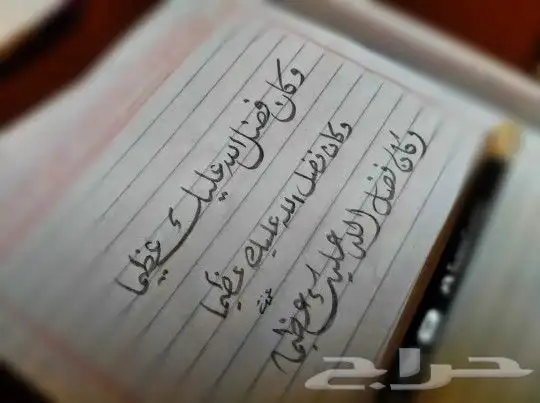 وكان فضل الله عليك عظيما
وكان فضل الله عليك عظيما
وكان فضل الله عليك عظيما
حراج